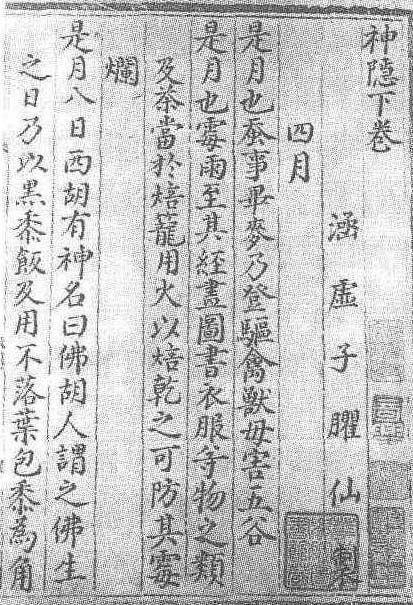 神隱下卷
涵虛子臞仙製
四月
是月也蚕事畢麥乃登驅禽獸毋害五谷
是月也霉雨至其經畫圖書衣服等物之類
及茶當於焙籠用火以焙乾之可防其霉
爛
是月八日西胡有神名曰佛胡人謂之佛生
之日乃以黑黍飯及用不落葉包黍為角